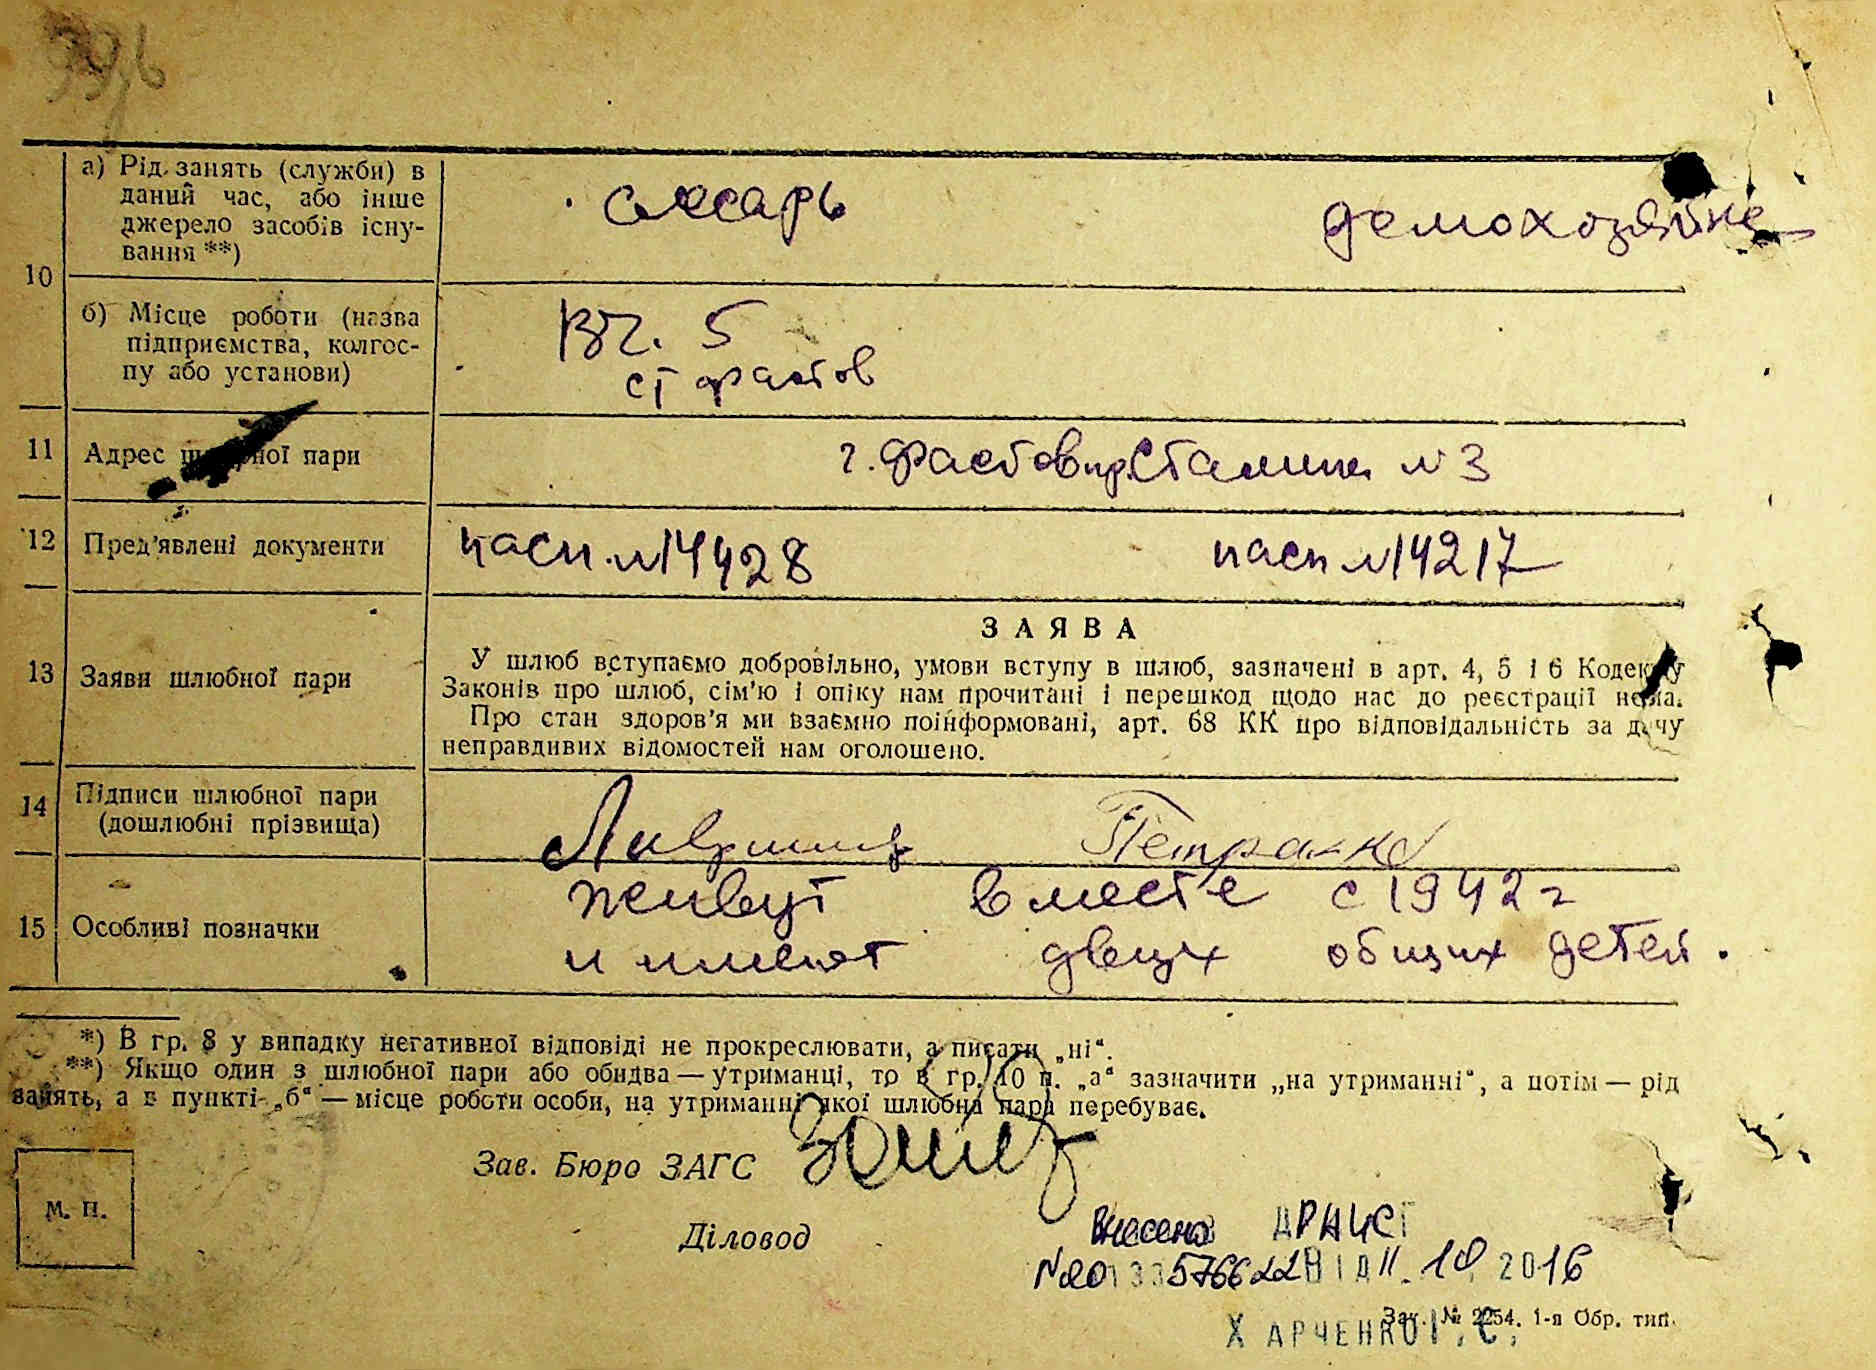 10
а) Рід занять (служби) в
даний час, або інше
джерело засобів існу-
вання **)
слесарь домохозяйка
б) Місце роботи (назва
підприємства, колгос-
пу або установи)
ВЧ. 5
ст Фастов
11 Адрес шлюбної пари г. Фастов пр. Сталина № 3
12 Пред'явлені документи пасп. № 14428 пасп № 14217
13 Заяви шлюбної пари
ЗАЯВА
У шлюб вступаємо добровільно, умови вступу в шлюб, зазначені в арт. 4, 5 і 6 Кодексу
Законів про шлюб, сім'ю і опіку нам прочитані і перешкод щодо нас до реєстрації нема.
Про стан здоров'я ми взаємно поінформовані, арт. 68 КК про відповідальність за дачу
неправдивих відомостей нам оголошено.
14 Підписи шлюбної пари
(дошлюбні прізвища)
15 Особливі позначки
живут вместе с 1942 г
и имеют двух общих детей.
*) В гр. 8 у випадку негативної відповіді не прокреслювати, а писати „ні“.
**) Якщо один з шлюбної пари або обидва — утриманці, то в гр. 10 п. „а“ зазначити „на утриманні“, а потім — рід
занять, а в пункті „б“ — місце роботи особи, на утриманні якої шлюбна пара перебуває.
Зав. Бюро ЗАГС
М. П.
Діловод
Внесено ДРАЦСГ
ВІД 11. 10. 2016
Зак. № 2254. 1-я Обр. тип.
ХАРЧЕНКО І. С.